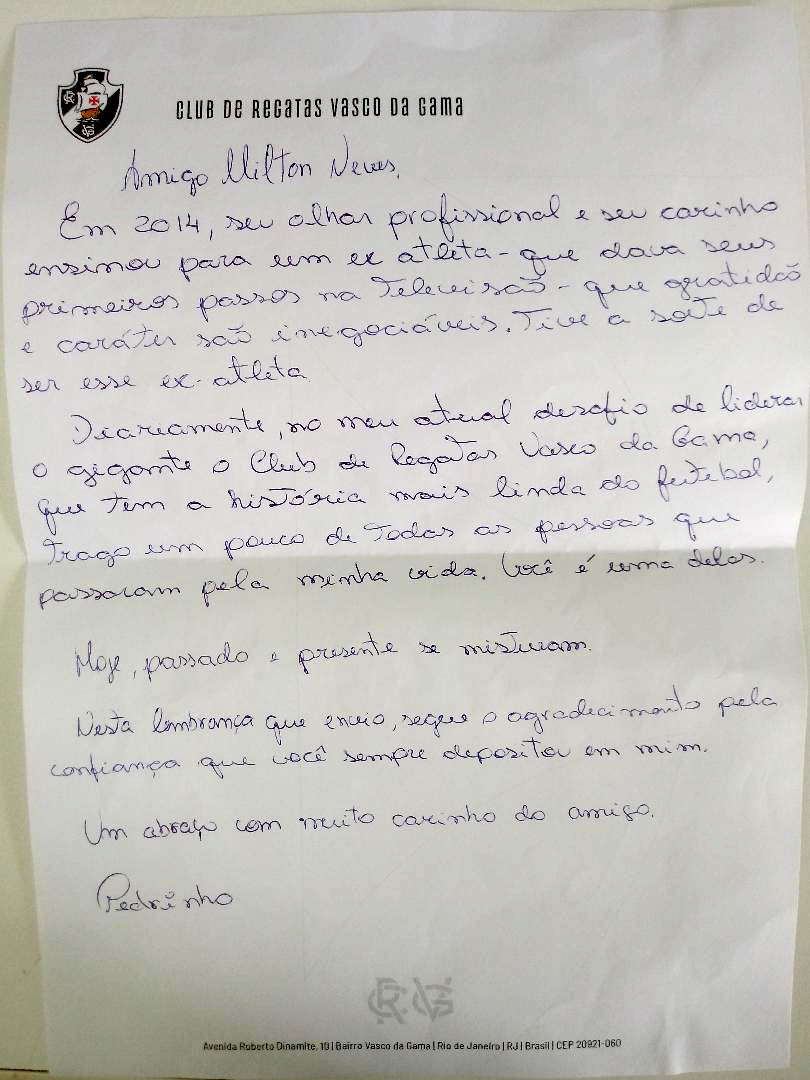 CLUB DE REGATAS VASCO DA GAMA
Amigo Milton Neves,
Em 2014, seu olhar profissional e seu carinho
ensinou para um ex atleta - que dava seus
primeiros passos na televisão - que gratidão
e caráter são inegociáveis. Tive a sorte de
ser esse ex-atleta.
Diariamente, no meu atual desafio de liderar
o gigante o Club de Regatas Vasco da Gama,
que tem a história mais linda do futebol,
trago um pouco de todas as pessoas que
passaram pela minha vida. Você é uma delas.
Hoje, passado e presente se misturam.
Nesta lembrança que envio, segue o agradecimento pela
confiança que você sempre depositou em mim.
Um abraço com muito carinho do amigo.
Pedrinho
CR VG
Avenida Roberto Dinamite, 10 | Bairro Vasco da Gama | Rio de Janeiro | RJ | Brasil | CEP 20921-060